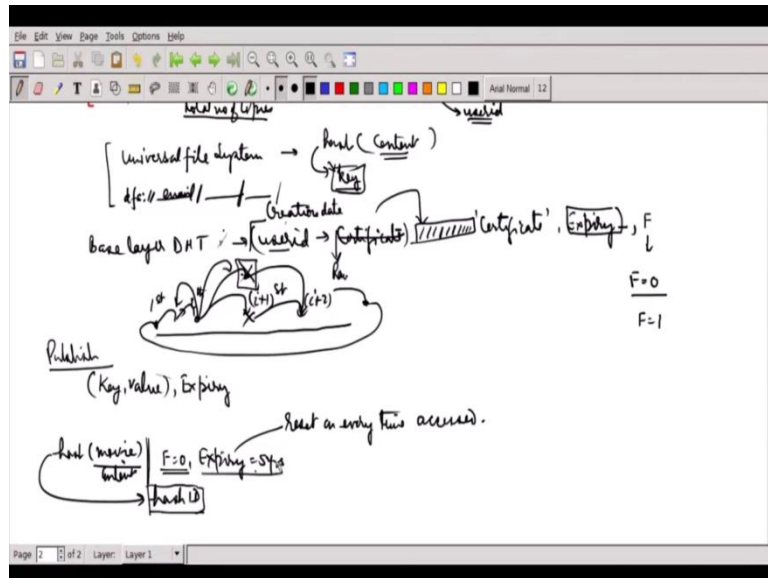 File Edit View Page Tools Options Help
T
Arial Normal 12
total no of copies
userid
Universal file system → hash (Content)
key
dfs:// email/
Creation date
Base layer DHT : → userid → Certificate 'Certificate', Expiry, F
F=0
F=1
1st (i+1)st (i+2)
Publish
(Key, value), Expiry
Reset on every time accessed.
hash (movie) F=0, Expiry = 5yrs
content
hash ID
Page 2 of 2 Layer: Layer 1